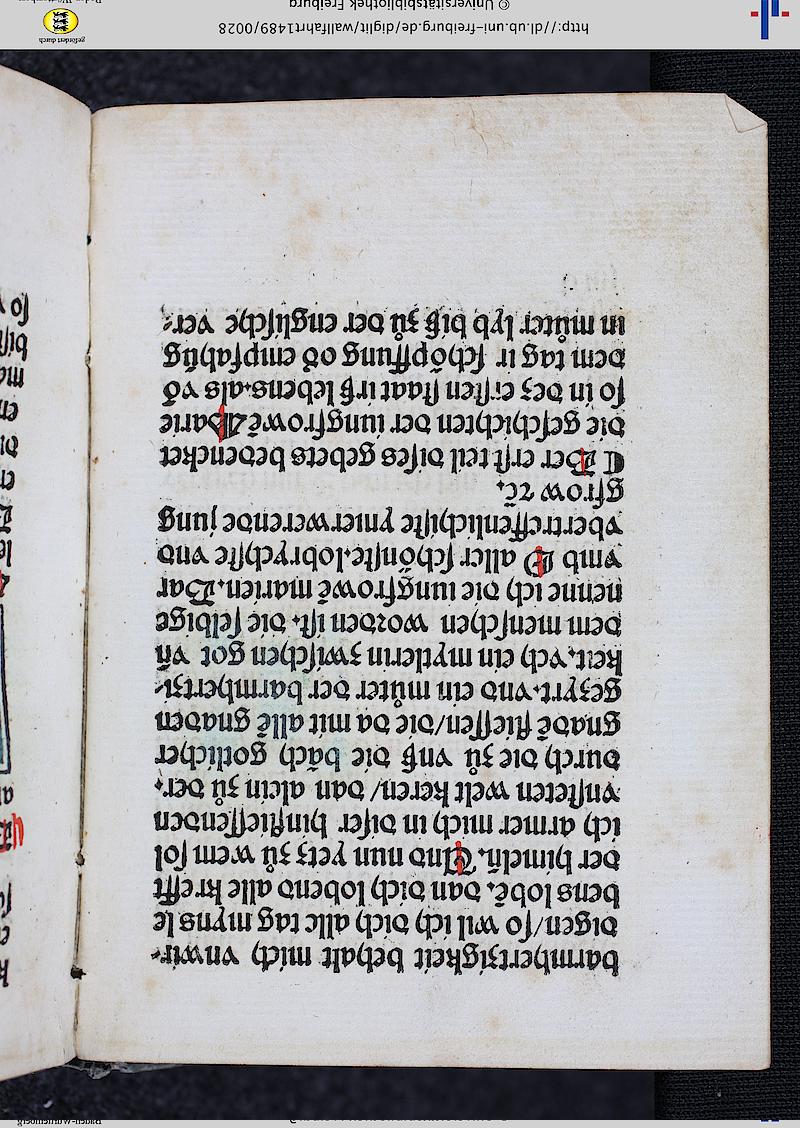 barmhertzigkeit behalt mich vnwir⸗
digen/so wil ich dich alle tag myns le
bens lobē. dan dich lobend alle krefft
der himeln̄. Und nun yetz zů wem sol
ich armer mich in diser hinfliessenden
vnsteten welt keren/ dan alein zů der⸗
durch die zů vnß die bāch gotlicher
gnadē fliessen/die da mit allē gnaden
gezyrt. vnd ein můter der barmhertzi⸗
keit. vch ein mytlerin zwischen got vn̄
dem menschen worden ist. die selbige
nenne ich die iungfrowē marien. Dar
vmb O aller schőnste. lobrychste vnd
vbertreffenlichiste ymerwerende jung
gfrow ⁊c̄.
¶ Der erst teil dises gebets bedencket
die geschichten der iungfrowē Marie
so in dez ersten staat irß lebens. als vō
dem tag ir schőpffung od empfahūg
in můter lyb biß zů der englische ver⸗
http://dl.ub.uni-freiburg.de/diglit/wallfahrt1489/0028
© Universitätsbibliothek Freiburg
gefördert durch
Baden-Württemberg